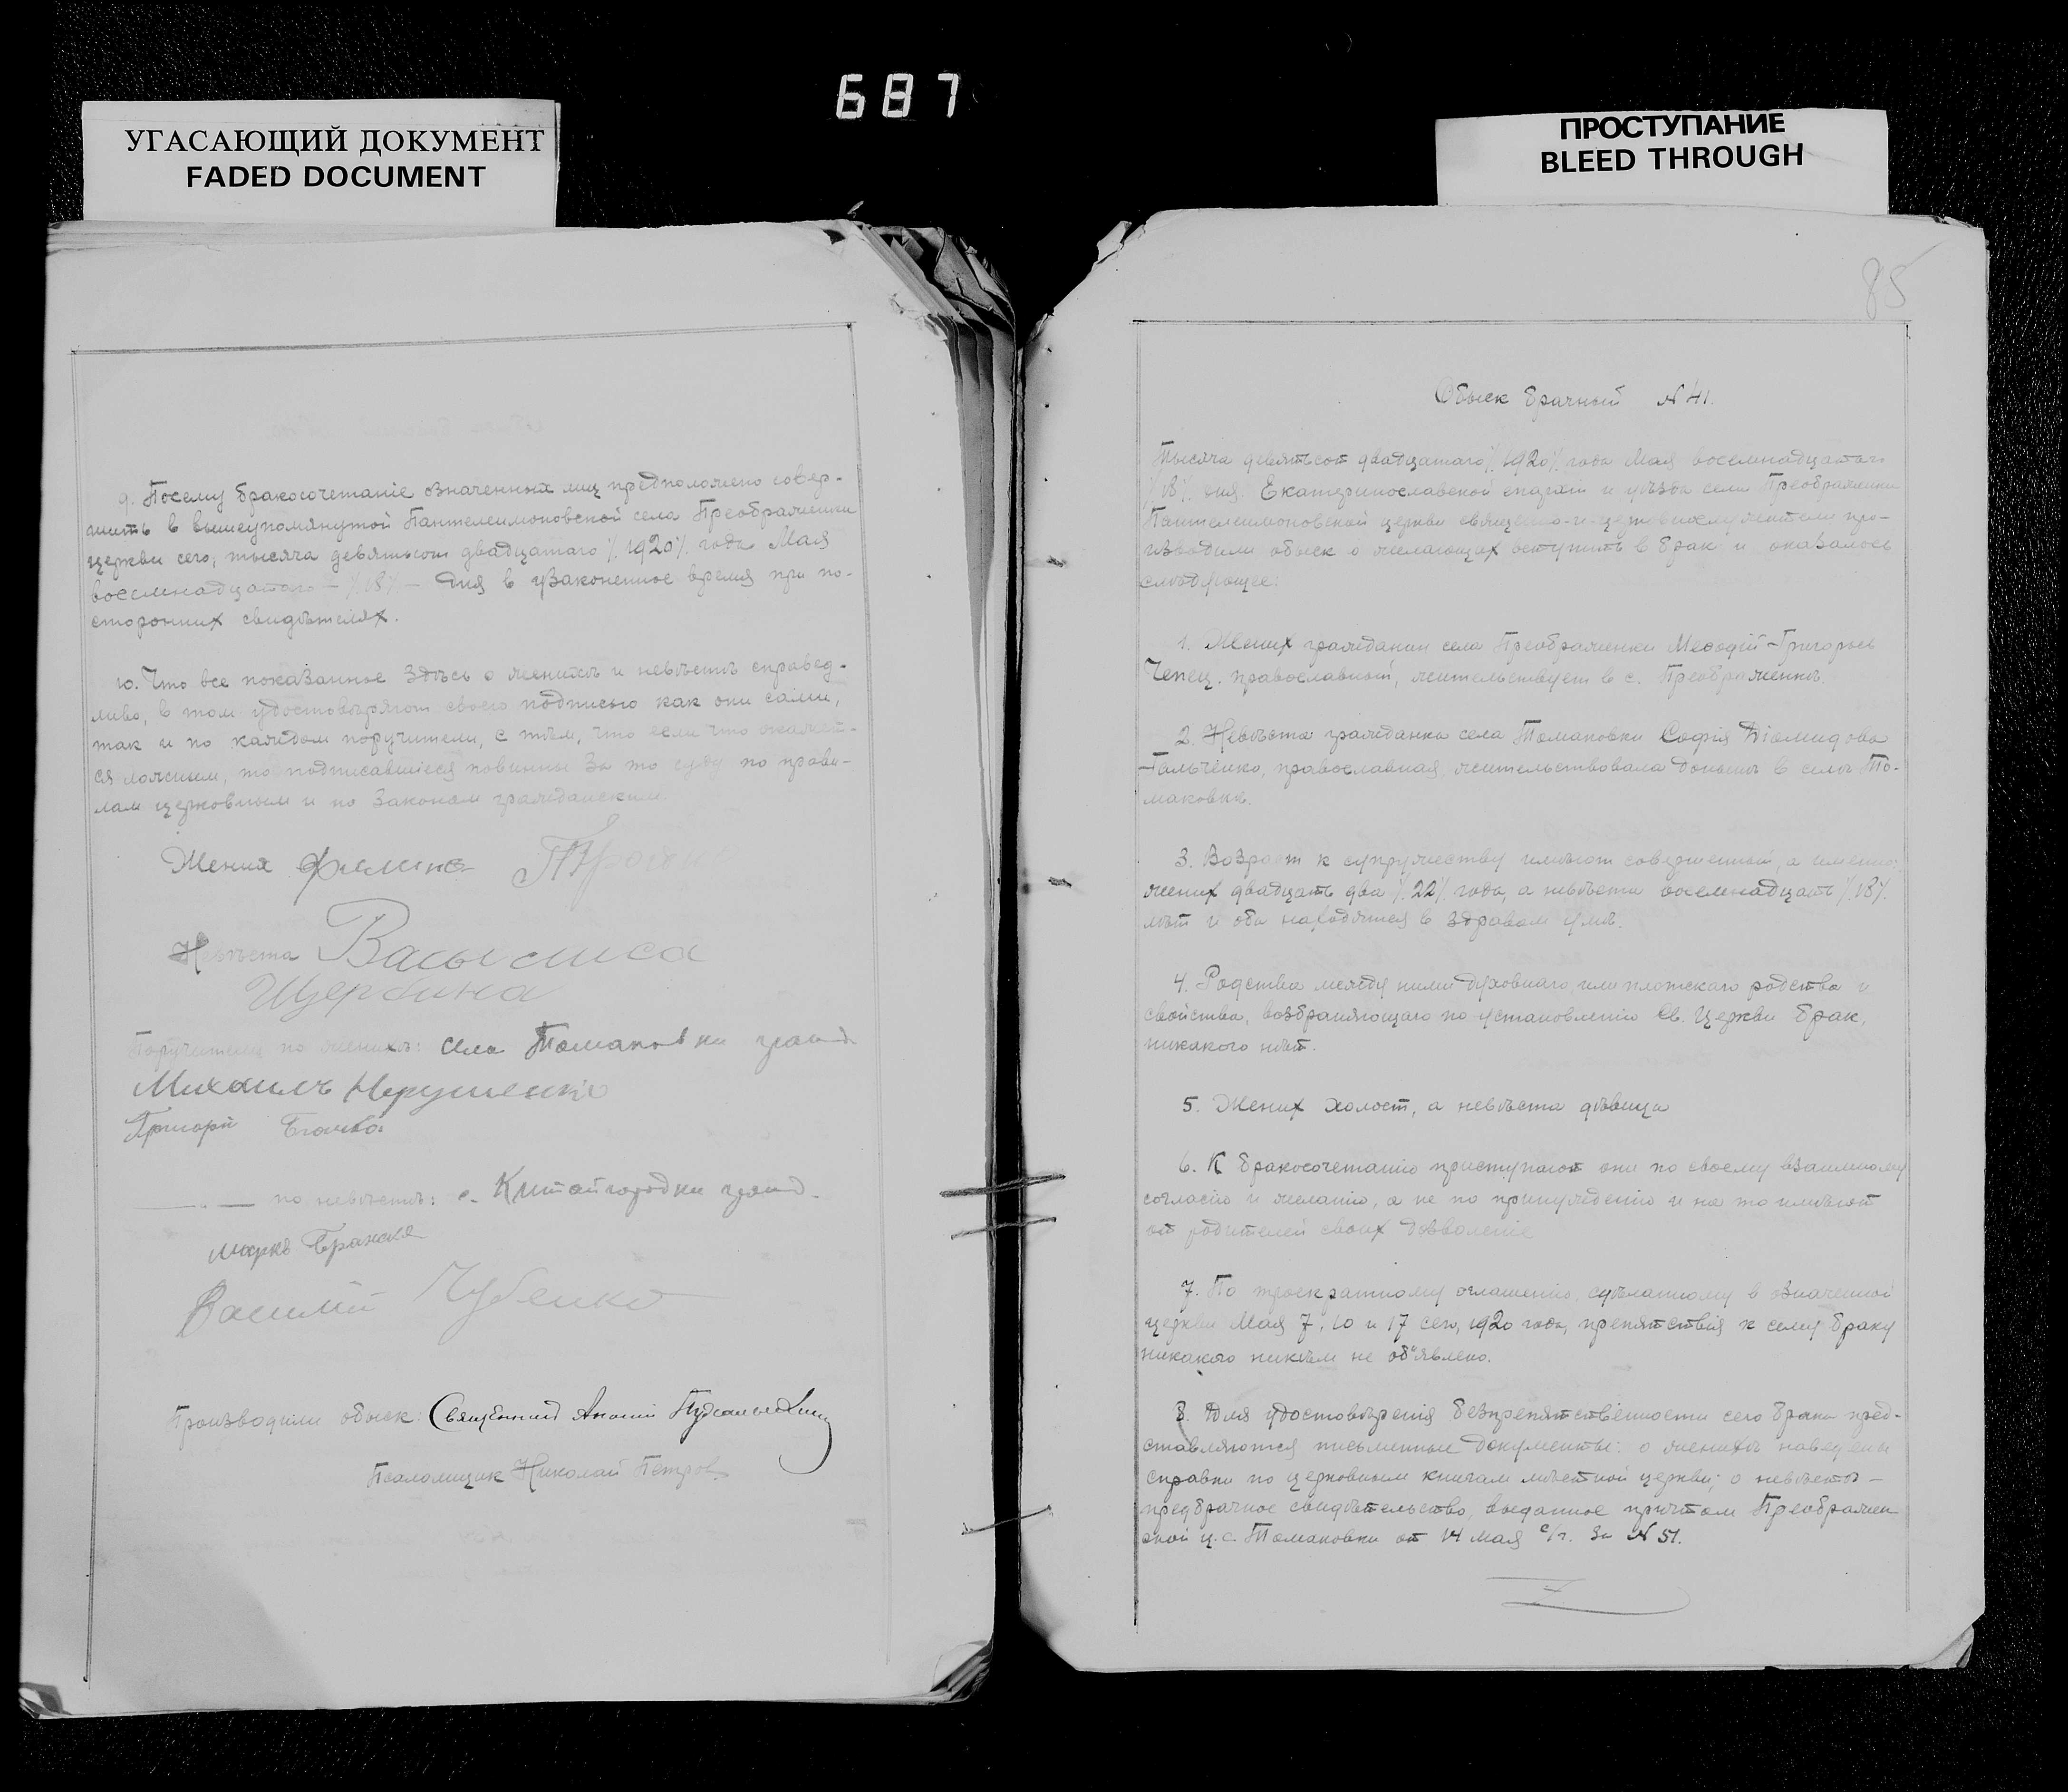 687
УГАСАЮЩИЙ ДОКУМЕНТ
FADED DOCUMENT
9. Посему бракосочетаніе означенных лиц предположено совер-
шить в вышеупомянутой Пантелеимоновской села Преображенки
церкви сего, тысяча девятьсот двадцатаго /.1920/. года Мая
восемнадцатаго - /.18/. - дня в узаконенное время при по-
сторонних свидѣтелях.
10. Что все показанное здѣсь о женихѣ и невѣстѣ справед-
ливо, в том удостовѣряют своею подписью как они сами,
так и по каждом поручители, с тѣм, что если что окажет-
ся ложным, то подписавшіеся повинны за то суду по прави-
лам церковным и по законам гражданским.
Жених
Невѣста Васылиса
Щербина
Поручители по женихѣ: села Томаковки гражд
Михаилъ
Григорій
— „ — по невѣстѣ: с. Китайгородки гражд.
Марко
Василій Чубенко
Производили обыск: Священник
Псаломщик Николай Петров
ПРОСТУПАНИЕ
BLEED THROUGH
85
Обыск брачный № 41.
Тысяча девятьсот двадцатаго /.1920/. года Мая восемнадцатаго
/.18/. дня. Екатеринославской епархіи и уѣзда села Преображенки
Пантелеимоновской церкви священно-и-церковнослужители про-
изводили обыск о желающих вступить в брак и оказалось
слѣдующее:
1. Жених гражданин села Преображенки Меѳодій Григорьев
Чепец, православный, жительствует в с. Преображенкѣ.
2. Невѣста гражданка села Томаковки Софія Діомидова
Гальченко, православная, жительствовала донынѣ в селѣ То-
маковкѣ.
3. Возраст к супружеству имѣют совершенный, а именно:
жених двадцать два /.22/. года, а невѣста восемнадцать /.18/.
лѣт и оба находятся в здравом умѣ.
4. Родства между ними духовнаго, или плотскаго родства и
свойства, возбраняющаго по установленію Св. Церкви брак,
никакого нѣт.
5. Жених холост, а невѣста дѣвица
6. К бракосочетанію приступают они по своему взаимному
согласію и желанію, а не по принужденію и на то имѣют
от родителей своих дозволеніе
7. По троекратному оглашенію, сдѣланному в означенной
церкви Мая 7, 10 и 17 сего, 1920 года, препятствія к сему браку
никакого никѣм не об'явлено.
8. Для удостовѣренія безпрепятственности сего брака пред-
ставляются письменные документы: о женихѣ наведены
справки по церковным книгам мѣстной церкви; о невѣстѣ -
предбрачное свидѣтельство, выданное причтом Преображен
ской ц. с. Томаковки от 14 мая с/г. за № 51.